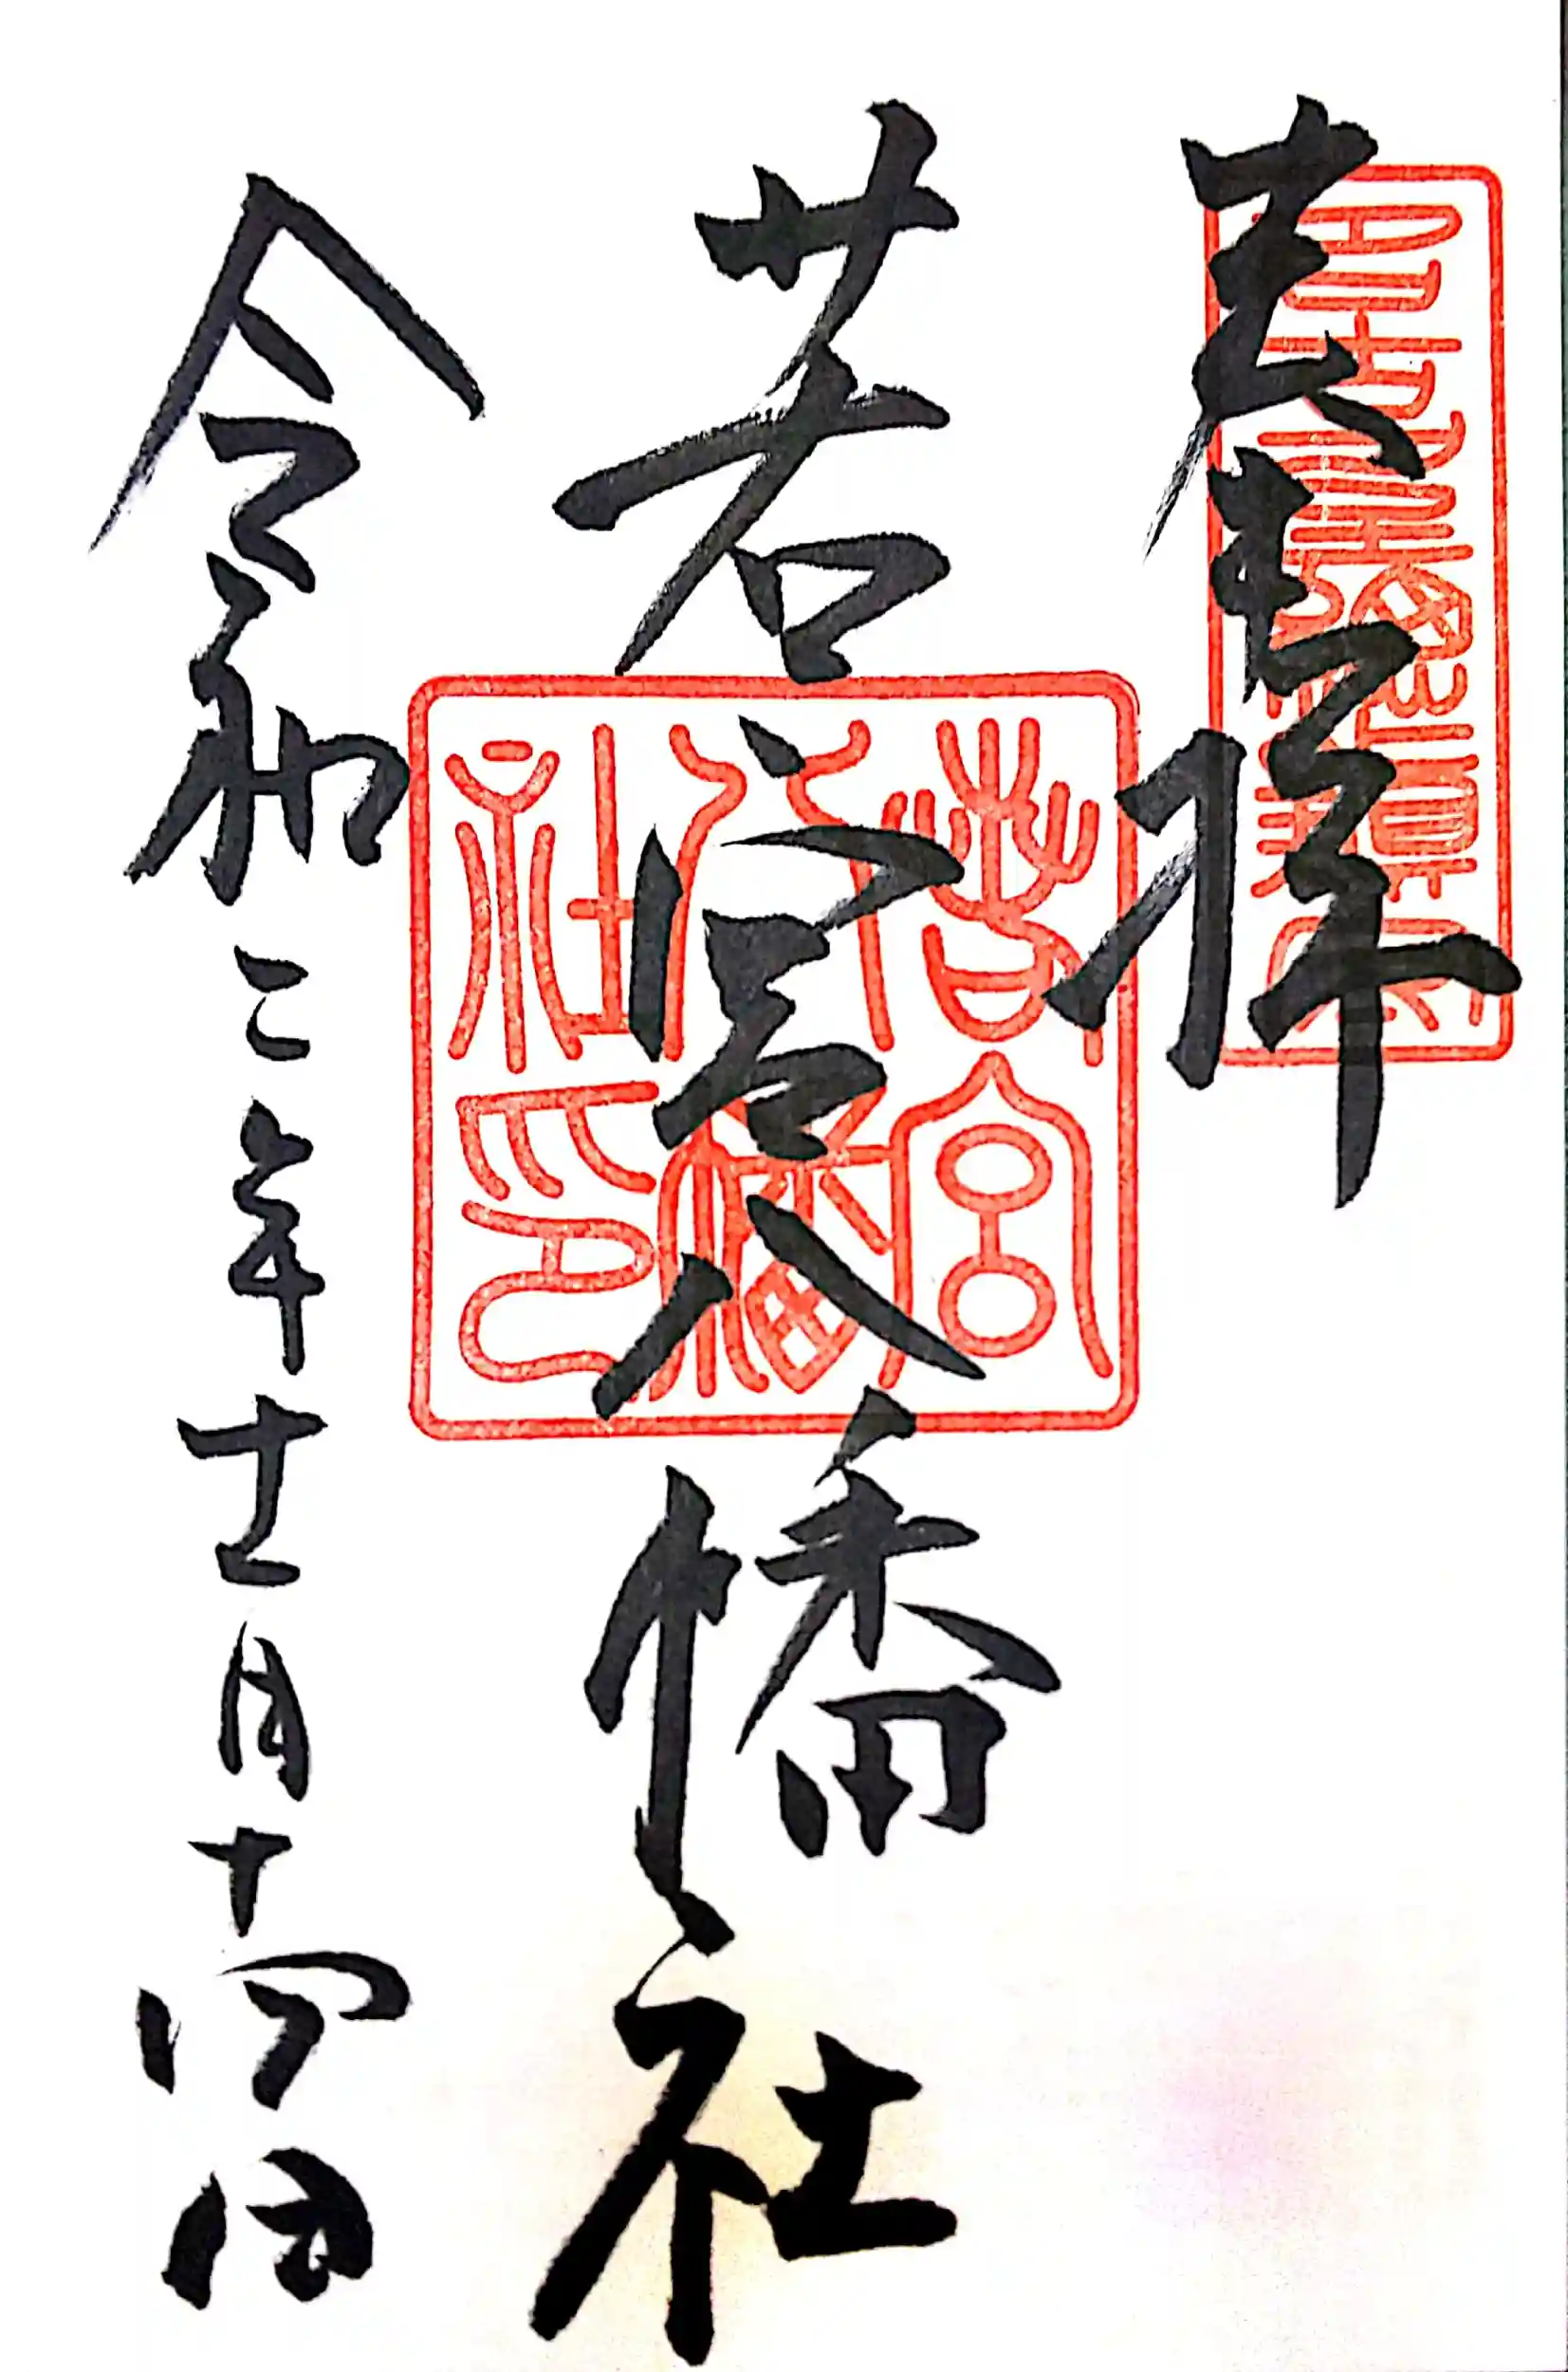 奉拝
若宮八幡社
令和二年十一月十四日
若宮
八幡
社印